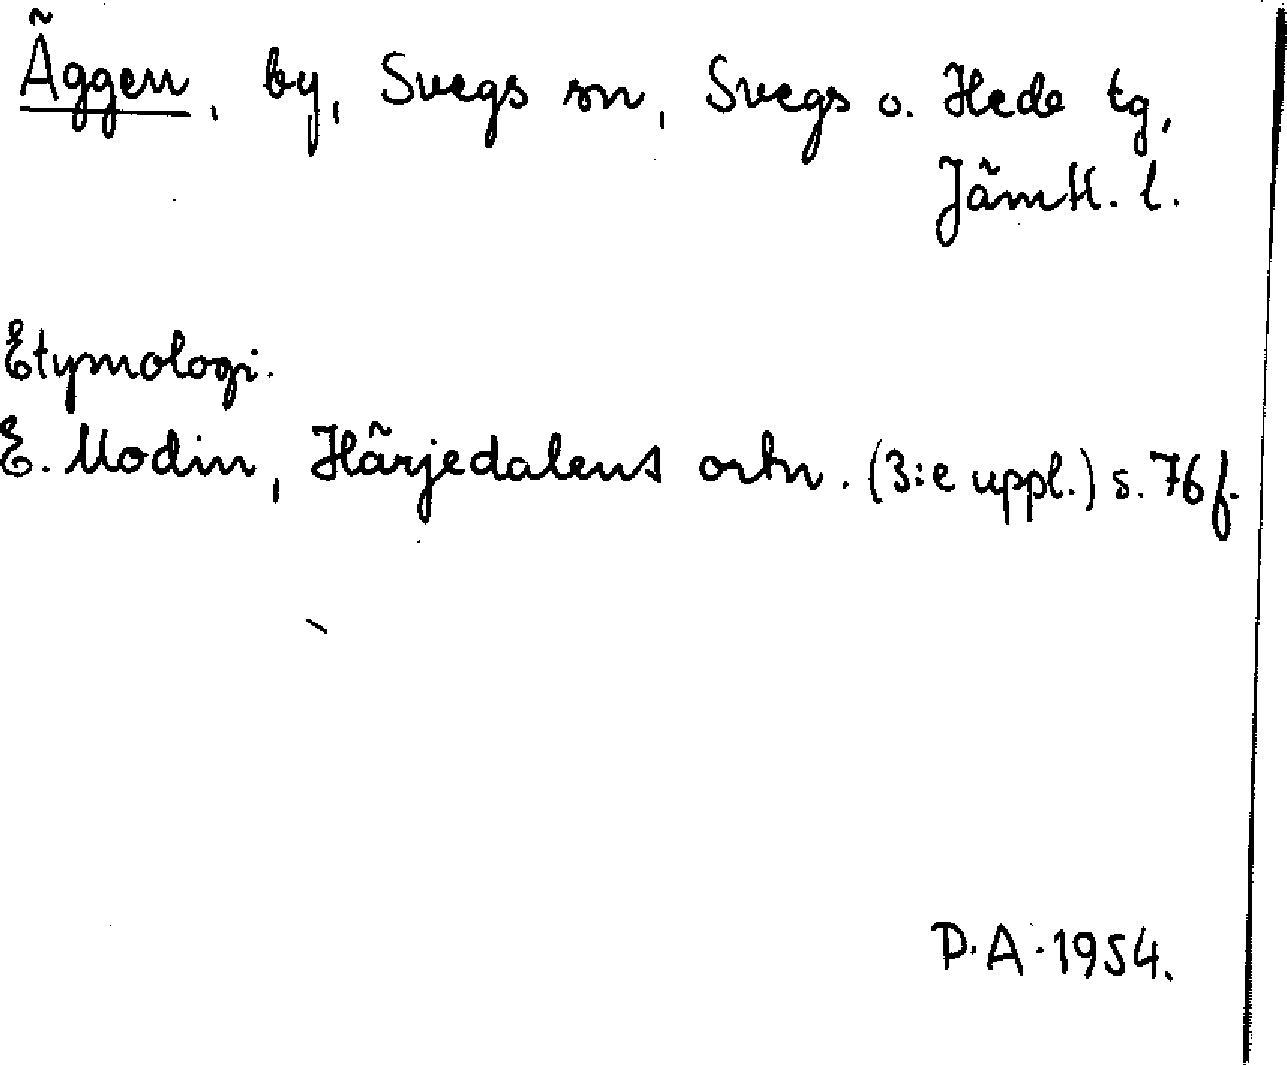 Äggen, by, Svegs sn, Svegs o. Hede tg,
Jämtl. l.
Etymologi.
E. Modin, Härjedalens ortn. (3:e uppl.) s. 76 f.
D.A. 1954.